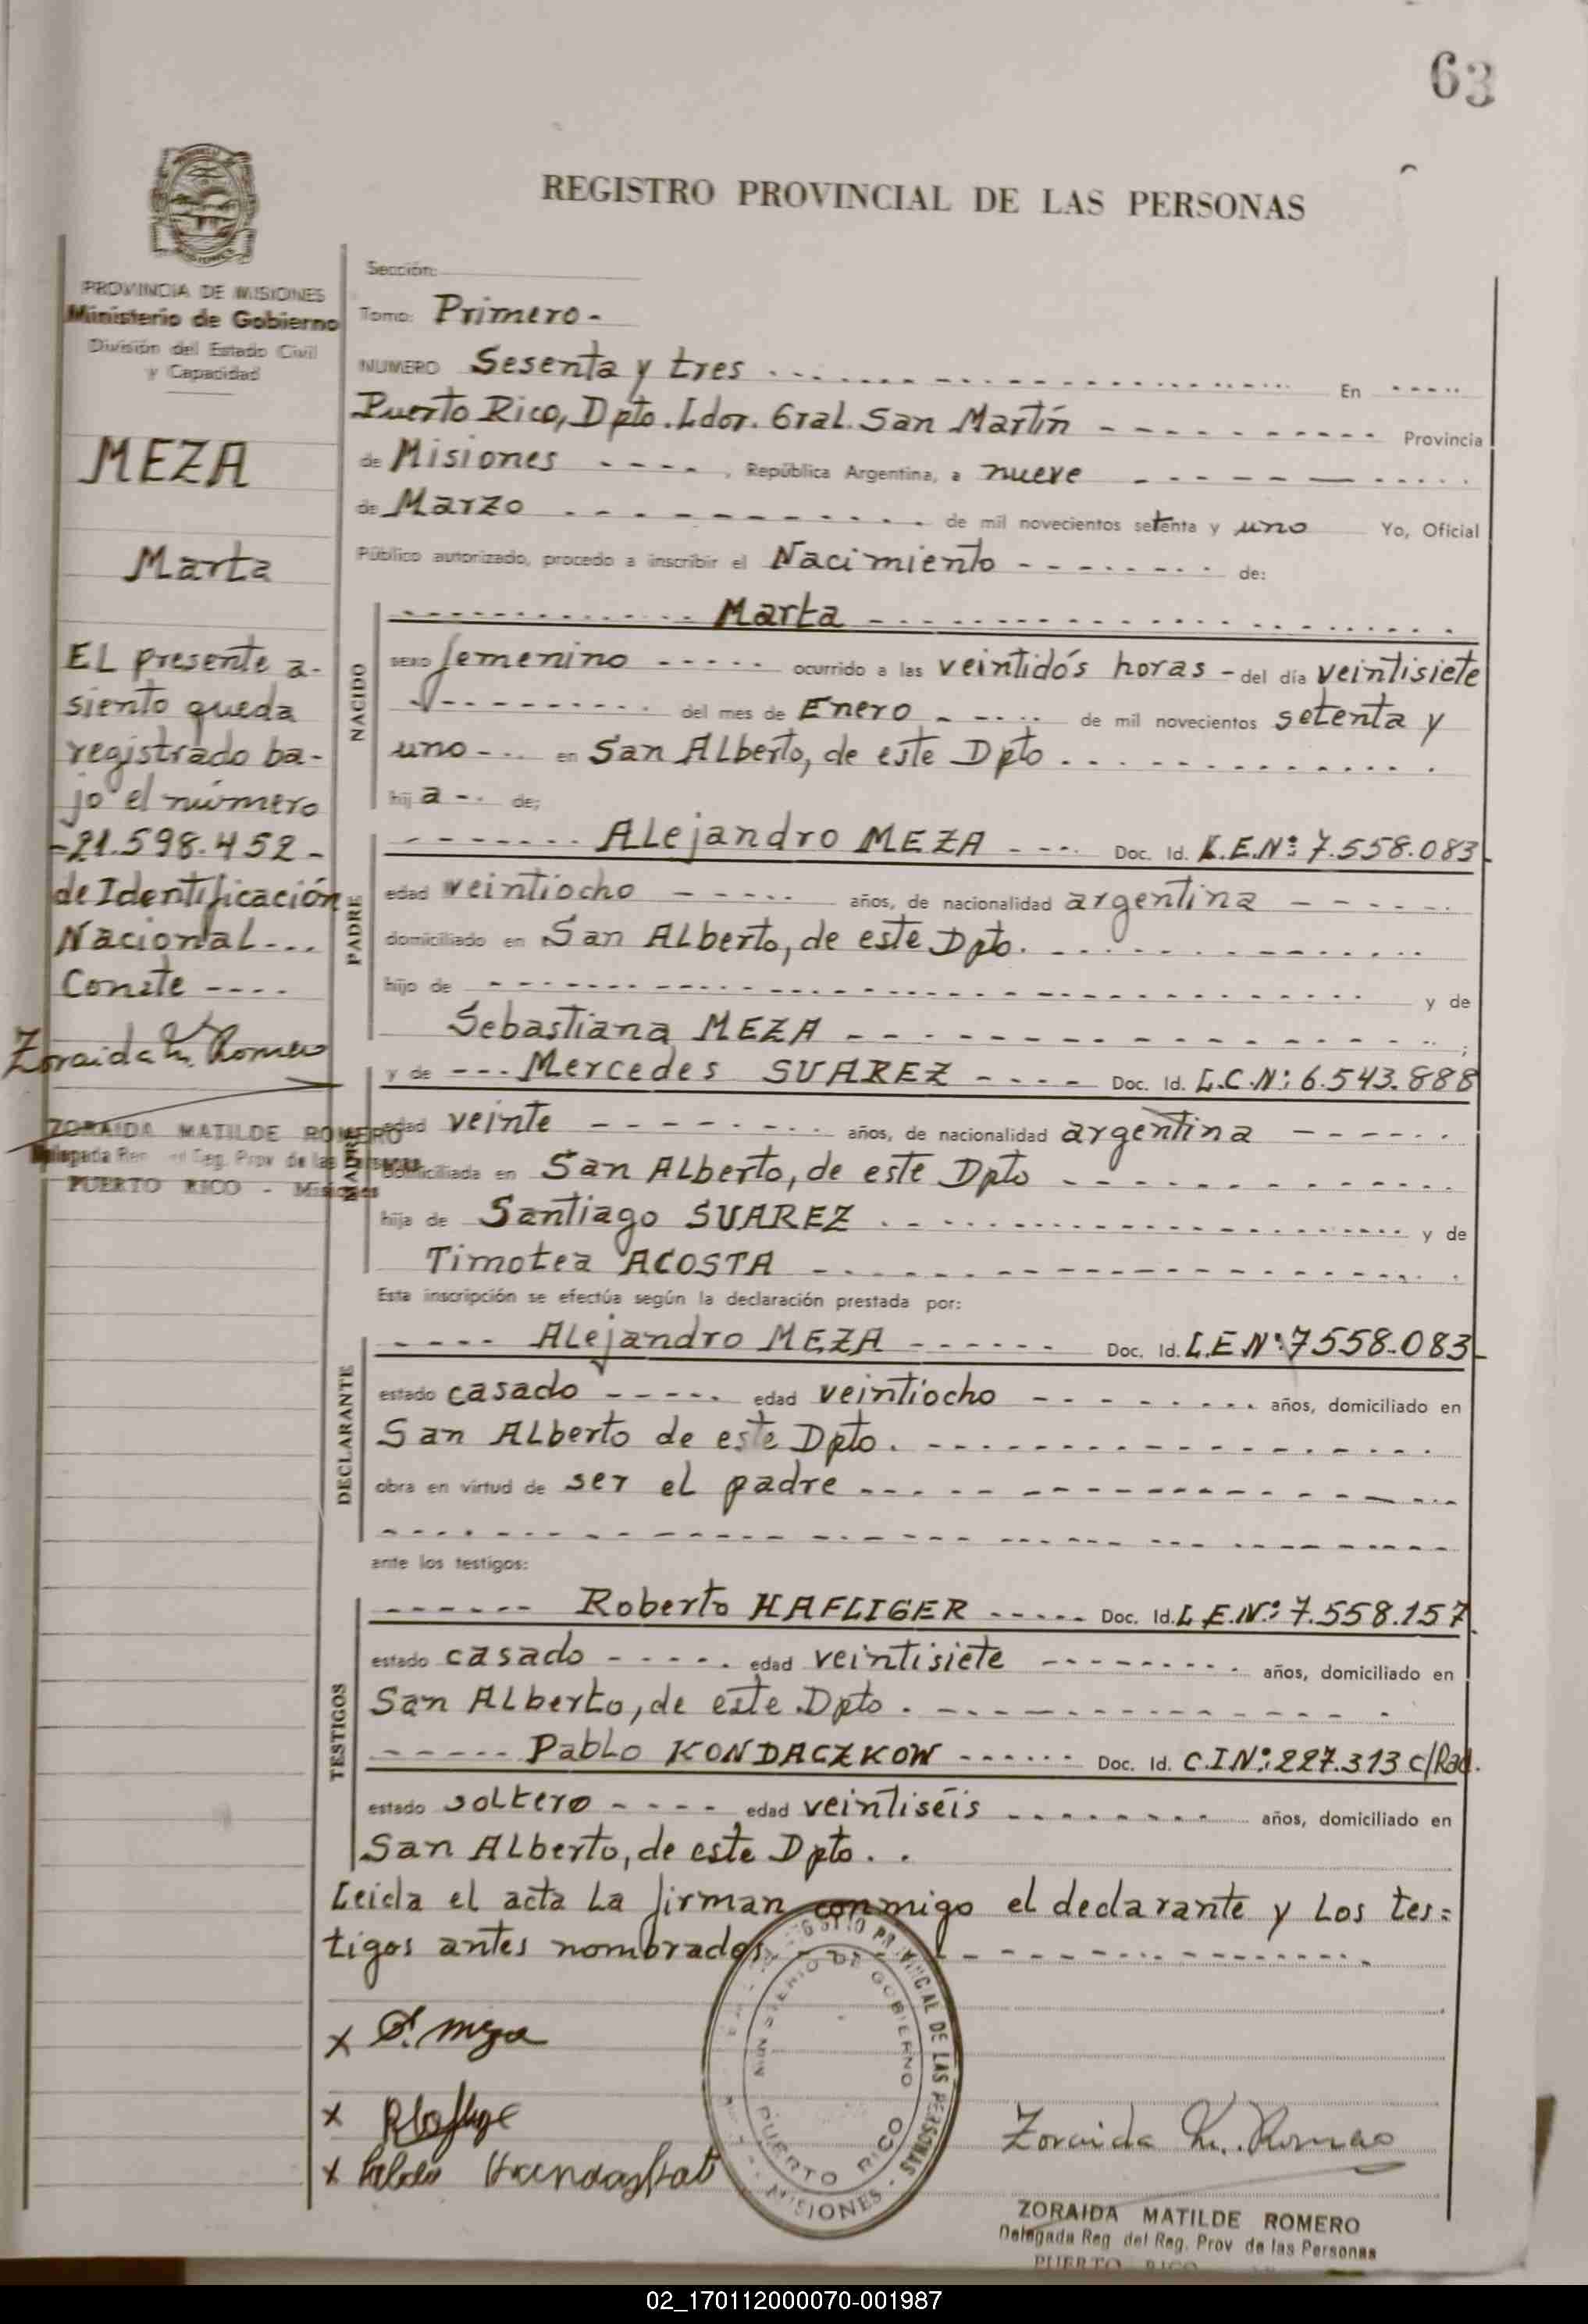 63
REGISTRO PROVINCIAL DE LAS PERSONAS
PROVINCIA DE MISIONES
Ministerio de Gobierno
División del Estado Civil
y Capacidad
MEZA
Marta
EL presente a-
siento queda
registrado ba-
jo el número
-21.598.452-
de Identificación
Nacional---
Conste ----
Zoraida M. Romero
ZORAIDA MATILDE ROMERO
Delegada Reg. del Reg. Prov de las Personas
PUERTO RICO - Misiones
Sección:
Tomo: Primero-
NUMERO Sesenta y tres En
Puerto Rico, Dpto. Ldor. Gral. San Martín Provincia
de Misiones ----, República Argentina, a nueve
de Marzo de mil novecientos setenta y uno Yo, Oficial
Público autorizado, procedo a inscribir el Nacimiento de:
Marta
NACIDO
sexo femenino ----- ocurrido a las veintidós horas - del día veintisiete
del mes de Enero de mil novecientos setenta y
uno --- en San ALberto, de este Dpto
hij a -- de;
ALejandro MEZA ---- Doc. Id. L.E.Nº: 7.558.083
PADRE
edad veintiocho ----- años, de nacionalidad argentina
domiciliado en San ALberto, de este Dpto.
hijo de y de
Sebastiana MEZA ;
y de --- Mercedes SUAREZ ---- Doc. Id. L.C.N: 6.543.888
MADRE
edad veinte años, de nacionalidad argentina
domiciliada en San ALberto, de este Dpto
hija de Santiago SUAREZ y de
Timotea ACOSTA
Esta inscripción se efectúa según la declaración prestada por:
---- ALejandro MEZA ------ Doc. Id. L.E Nº: 7558.083
DECLARANTE
estado casado ----- edad veintiocho años, domiciliado en
San ALberto de este Dpto.
obra en virtud de ser el padre
ante los testigos:
------ Roberto HAFLIGER ----- Doc. Id. L.E.Nº: 7.558.157
TESTIGOS
estado casado ----- edad veintisiete años, domiciliado en
San ALberto, de este Dpto.
----- PabLo KONDACZKOW ------ Doc. Id. C.I Nº: 227.313 c/Rad.
estado soltero ---- edad veintiséis años, domiciliado en
San ALberto, de este Dpto. .
Leida el acta La firman conmigo el declarante y Los tes=
tigos antes nombrados
x A. meza
x
x Pablo
REGISTRO PROVINCIAL DE LAS PERSONAS
MINISTERIO DE GOBIERNO
PUERTO RICO
MISIONES
Zoraida M. Romero
ZORAIDA MATILDE ROMERO
Delegada Reg del Reg. Prov de las Personas
PUERTO RICO
02_170112000070-001987